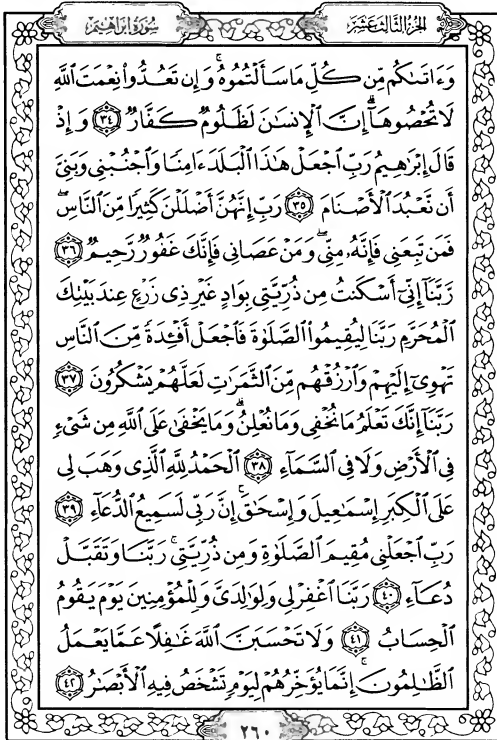 الجزء الثالث عشر
سورة إبراهيم
وَءَاتَىٰكُم مِّن كُلِّ مَا سَأَلْتُمُوهُ ۚ وَإِن تَعُدُّوا۟ نِعْمَتَ ٱللَّهِ
لَا تُحْصُوهَآ ۗ إِنَّ ٱلْإِنسَٰنَ لَظَلُومٌ كَفَّارٌ ٣٤ وَإِذْ
قَالَ إِبْرَٰهِيمُ رَبِّ ٱجْعَلْ هَٰذَا ٱلْبَلَدَ ءَامِنًا وَٱجْنُبْنِى وَبَنِىَّ
أَن نَّعْبُدَ ٱلْأَصْنَامَ ٣٥ رَبِّ إِنَّهُنَّ أَضْلَلْنَ كَثِيرًا مِّنَ ٱلنَّاسِ ۖ
فَمَن تَبِعَنِى فَإِنَّهُۥ مِنِّى ۖ وَمَنْ عَصَانِى فَإِنَّكَ غَفُورٌ رَّحِيمٌ ٣٦
رَّبَّنَآ إِنِّىٓ أَسْكَنتُ مِن ذُرِّيَّتِى بِوَادٍ غَيْرِ ذِى زَرْعٍ عِندَ بَيْتِكَ
ٱلْمُحَرَّمِ رَبَّنَا لِيُقِيمُوا۟ ٱلصَّلَوٰةَ فَٱجْعَلْ أَفْـِٔدَةً مِّنَ ٱلنَّاسِ
تَهْوِىٓ إِلَيْهِمْ وَٱرْزُقْهُم مِّنَ ٱلثَّمَرَٰتِ لَعَلَّهُمْ يَشْكُرُونَ ٣٧
رَبَّنَآ إِنَّكَ تَعْلَمُ مَا نُخْفِى وَمَا نُعْلِنُ ۗ وَمَا يَخْفَىٰ عَلَى ٱللَّهِ مِن شَىْءٍ
فِى ٱلْأَرْضِ وَلَا فِى ٱلسَّمَآءِ ٣٨ ٱلْحَمْدُ لِلَّهِ ٱلَّذِى وَهَبَ لِى
عَلَى ٱلْكِبَرِ إِسْمَٰعِيلَ وَإِسْحَٰقَ ۚ إِنَّ رَبِّى لَسَمِيعُ ٱلدُّعَآءِ ٣٩
رَبِّ ٱجْعَلْنِى مُقِيمَ ٱلصَّلَوٰةِ وَمِن ذُرِّيَّتِى ۚ رَبَّنَا وَتَقَبَّلْ
دُعَآءِ ٤٠ رَبَّنَا ٱغْفِرْ لِى وَلِوَٰلِدَىَّ وَلِلْمُؤْمِنِينَ يَوْمَ يَقُومُ
ٱلْحِسَابُ ٤١ وَلَا تَحْسَبَنَّ ٱللَّهَ غَٰفِلًا عَمَّا يَعْمَلُ
ٱلظَّٰلِمُونَ ۚ إِنَّمَا يُؤَخِّرُهُمْ لِيَوْمٍ تَشْخَصُ فِيهِ ٱلْأَبْصَٰرُ ٤٢
٢٦٠